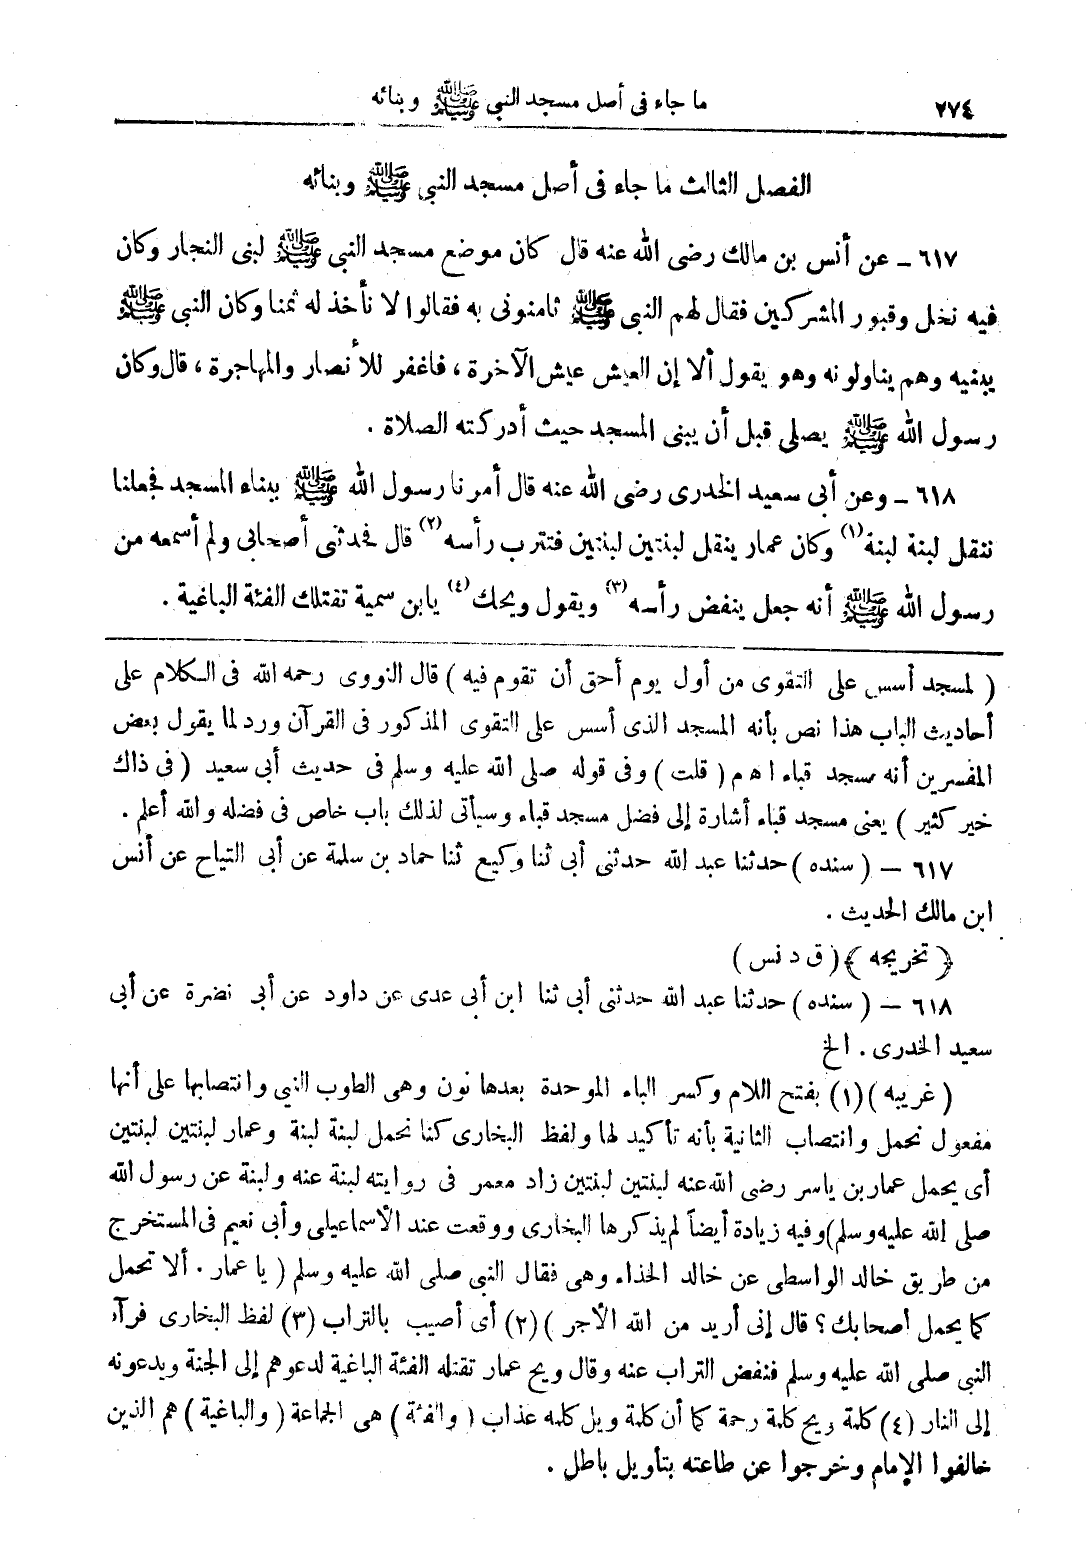 ٢٧٤ ما جاء فى أصل مسجد النبى ﷺ وبنائه
الفصل الثالث ما جاء فى أصل مسجد النبى ﷺ وبنائه
٦١٧ ـ عن أنس بن مالك رضى الله عنه قال كان موضع مسجد النبى ﷺ لبنى النجار وكان
فيه نخل وقبور المشركين فقال لهم النبى ﷺ ثامنونى به فقالوا لا نأخذ له ثمنا وكان النبى ﷺ
يبنيه وهم يناولونه وهو يقول ألا إن العيش عيش الآخرة ، فاغفر للأنصار والمهاجرة ، قال وكان
رسول الله ﷺ يصلى قبل أن يبنى المسجد حيث أدركته الصلاة .
٦١٨ ـ وعن أبى سعيد الخدرى رضى الله عنه قال أمرنا رسول الله ﷺ ببناء المسجد فجعلنا
ننقل لبنة لبنة (١) وكان عمار ينقل لبنتين لبنتين فتترب رأسه (٢) قال فحدثنى أصحابى ولم أسمعه من
رسول الله ﷺ أنه جعل ينفض رأسه (٣) ويقول ويحك (٤) يابن سمية تقتلك الفئة الباغية .
( لمسجد أسس على التقوى من أول يوم أحق أن تقوم فيه ) قال النووى رحمه الله فى الكلام على
أحاديث الباب هذا نص بأنه المسجد الذى أسس على التقوى المذكور فى القرآن ورد لما يقول بعض
المفسرين أنه مسجد قباء اهم ( قلت ) وفى قوله صلى الله عليه وسلم فى حديث أبى سعيد ( فى ذاك
خير كثير ) يعنى مسجد قباء أشارة إلى فضل مسجد قباء وسيأتى لذلك باب خاص فى فضله والله أعلم .
٦١٧ — ( سنده ) حدثنا عبد الله حدثنى أبى ثنا وكيع ثنا حماد بن سلمة عن أبى التياح عن أنس
ابن مالك الحديث .
﴿ تخريجه ﴾ ( ق د نس )
٦١٨ — ( سنده ) حدثنا عبد الله حدثنى أبى ثنا ابن أبى عدى عن داود عن أبى نضرة عن أبى
سعيد الخدرى . الخ
( غريبه ) (١) بفتح اللام وكسر الباء الموحدة بعدها نون وهى الطوب النيى وانتصابها على أنها
مفعول نحمل وانتصاب الثانية بأنه تأكيد لها ولفظ البخارى كنا نحمل لبنة لبنة وعمار لبنتين لبنتين
أى يحمل عمار بن ياسر رضى الله عنه لبنتين لبنتين زاد معمر فى روايته لبنة عنه ولبنة عن رسول الله
صلى الله عليه وسلم) وفيه زيادة أيضاً لم يذكرها البخارى ووقعت عند الأسماعيلى وأبى نعيم فى المستخرج
من طريق خالد الواسطى عن خالد الحذاء وهى فقال النبى صلى الله عليه وسلم ( يا عمار . ألا تحمل
كما يحمل أصحابك ؟ قال إنى أريد من الله الأجر ) (٢) أى أصيب بالتراب (٣) لفظ البخارى فرآه
النبى صلى الله عليه وسلم فنفض التراب عنه وقال ويح عمار تقتله الفئة الباغية لدعوهم إلى الجنة ويدعونه
إلى النار (٤) كلمة ريح كلمة رحمة كما أن كلمة ويل كلمه عذاب ( والفئة ) هى الجماعة ( والباغية ) هم الذين
خالفوا الإمام وخرجوا عن طاعته بتأويل باطل .